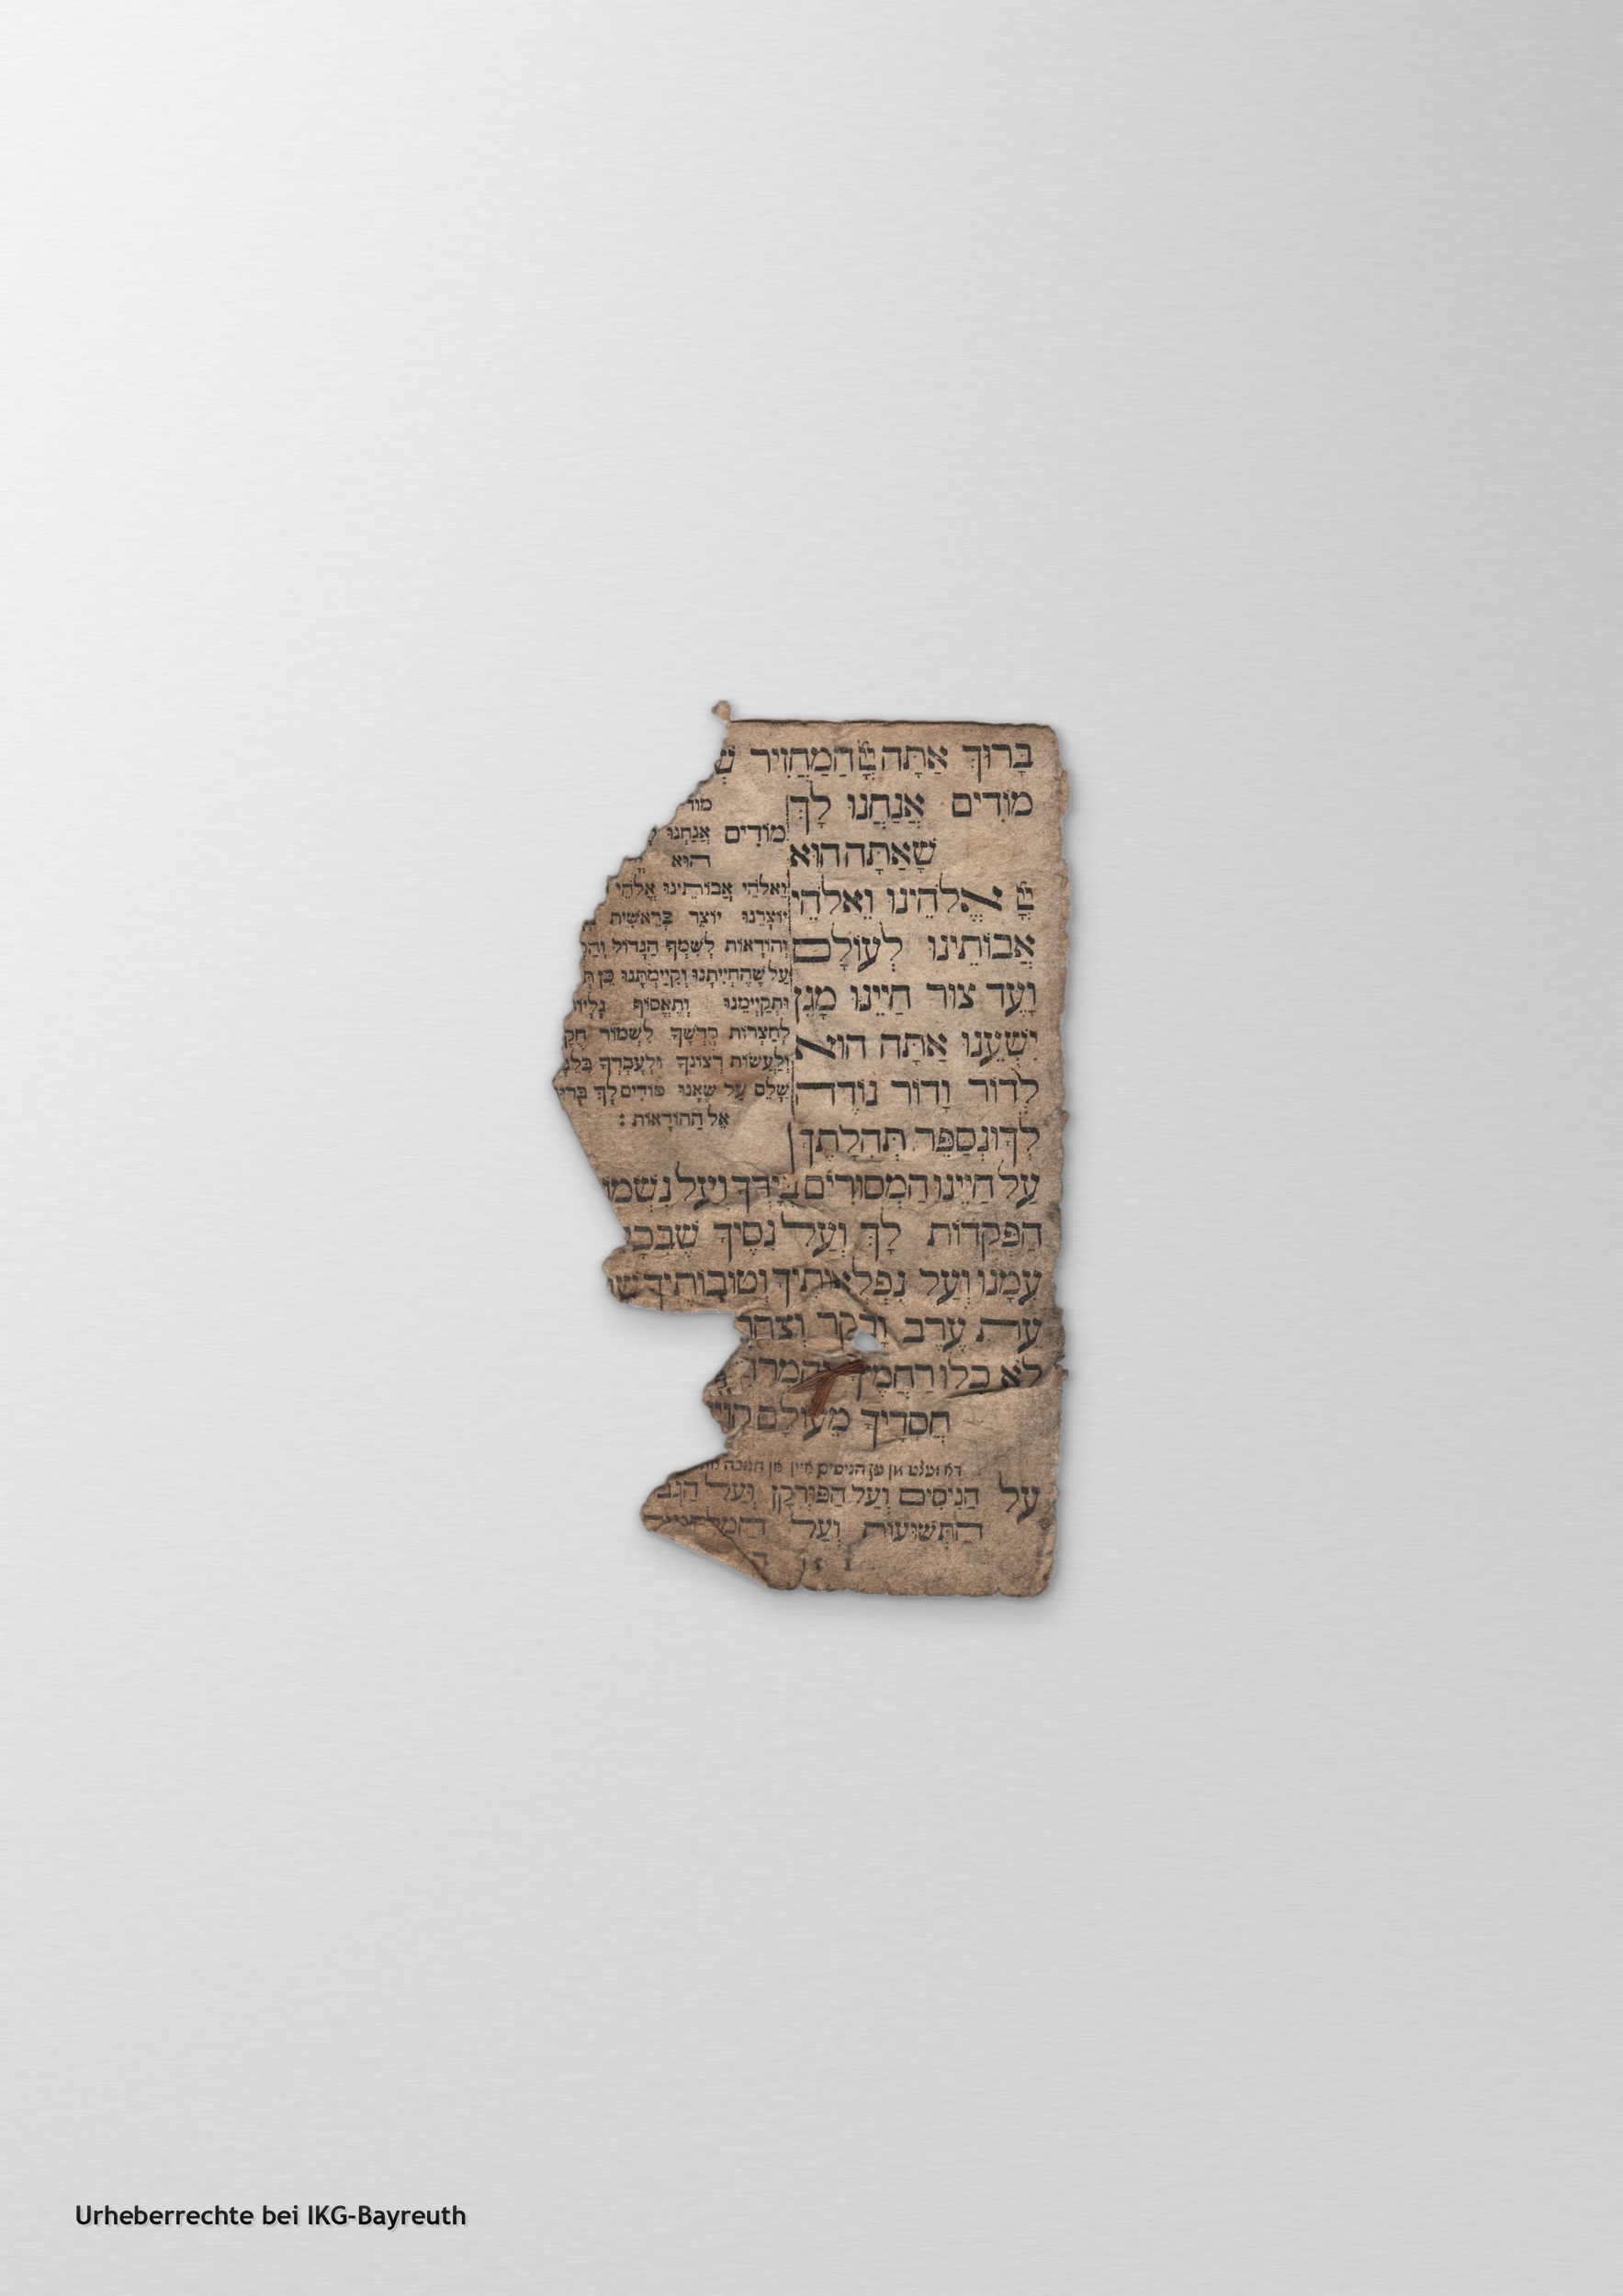 בָּרוּךְ אַתָּה יְיָ הַמַּחֲזִיר
מוֹדִים אֲנַחְנוּ לָךְ
שָׁאַתָּה הוּא
יְיָ אֱלֹהֵינוּ וֵאלֹהֵי
אֲבוֹתֵינוּ לְעוֹלָם
וָעֶד צוּר חַיֵּינוּ מָגֵן
יִשְׁעֵנוּ אַתָּה הוּא
לְדוֹר וָדוֹר נוֹדֶה
לְךָ וּנְסַפֵּר תְּהִלָּתֶךָ
מוֹדִים אֲנַחְנוּ
הוּא
וֵאלֹהֵי אֲבוֹתֵינוּ אֱלֹהֵי
יוֹצְרֵנוּ יוֹצֵר בְּרֵאשִׁית
וְהוֹדָאוֹת לְשִׁמְךָ הַגָּדוֹל
עַל שֶׁהֶחְיִיתָנוּ וְקִיַּימְתָּנוּ כֵּן
וּתְקַיְּימֵנוּ וְתֶאֱסוֹף
לְחַצְרוֹת קָדְשֶׁךָ לִשְׁמוֹר
וְלַעֲשׂוֹת רְצוֹנֶךָ וּלְעָבְדְּךָ
שָׁלֵם עַל שֶׁאָנוּ מוֹדִים לָךְ
אֵל הַהוֹדָאוֹת :
עַל חַיֵּינוּ הַמְּסוּרִים בְּיָדֶךָ וְעַל
הַפְּקֻדוֹת לָךְ וְעַל נִסֶּיךָ
עִמָּנוּ וְעַל נִפְלְאוֹתֶיךָ וְטוֹבוֹתֶיךָ
עֵת עֶרֶב וָבֹקֶר
לֹא כָלוּ רַחֲמֶיךָ
חֲסָדֶיךָ מֵעוֹלָם
עַל הַנִּיסִים וְעַל הַפּוּרְקָן וְעַל
הַתְּשׁוּעוֹת וְעַל
Urheberrechte bei IKG-Bayreuth